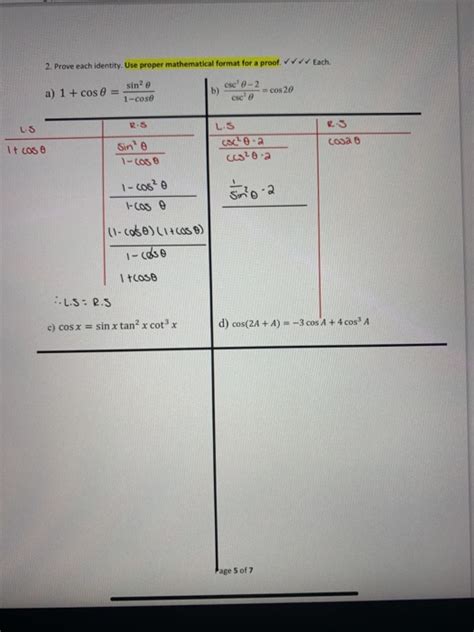 2. Prove each identity. Use proper mathematical format for a proof. ✓✓✓✓ Each.
a) 1 + cos θ = sin² θ / 1−cosθ
b) csc² θ − 2 / csc² θ = cos 2θ
L.S
R.S
1+ cos θ
sin² θ / 1 - cos θ
1 - cos² θ / 1-cos θ
(1-cosθ)(1+cosθ) / 1 - cosθ
1+cosθ
∴ L.S = R.S
L.S
R.S
csc² θ - 2 / csc² θ - 2
cos2θ
1 / sin² θ - 2
c) cos x = sin x tan² x cot³ x
d) cos(2A + A) = −3 cos A + 4 cos³ A
Page 5 of 7